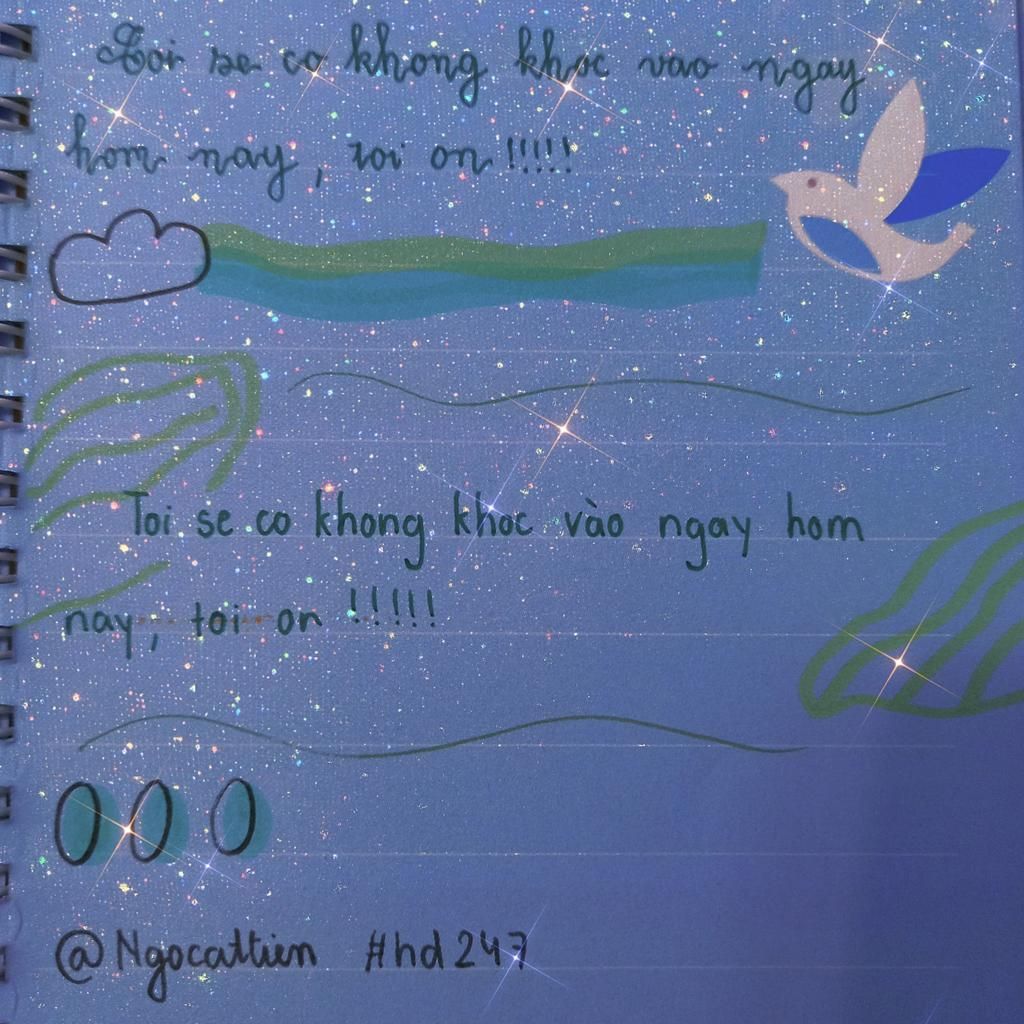 Toi se co khong khoc vao ngay
hom nay, toi on !!!!!
Toi se co khong khoc vào ngay hom
nay, toi on !!!!!
000
@Ngocattien #hd247